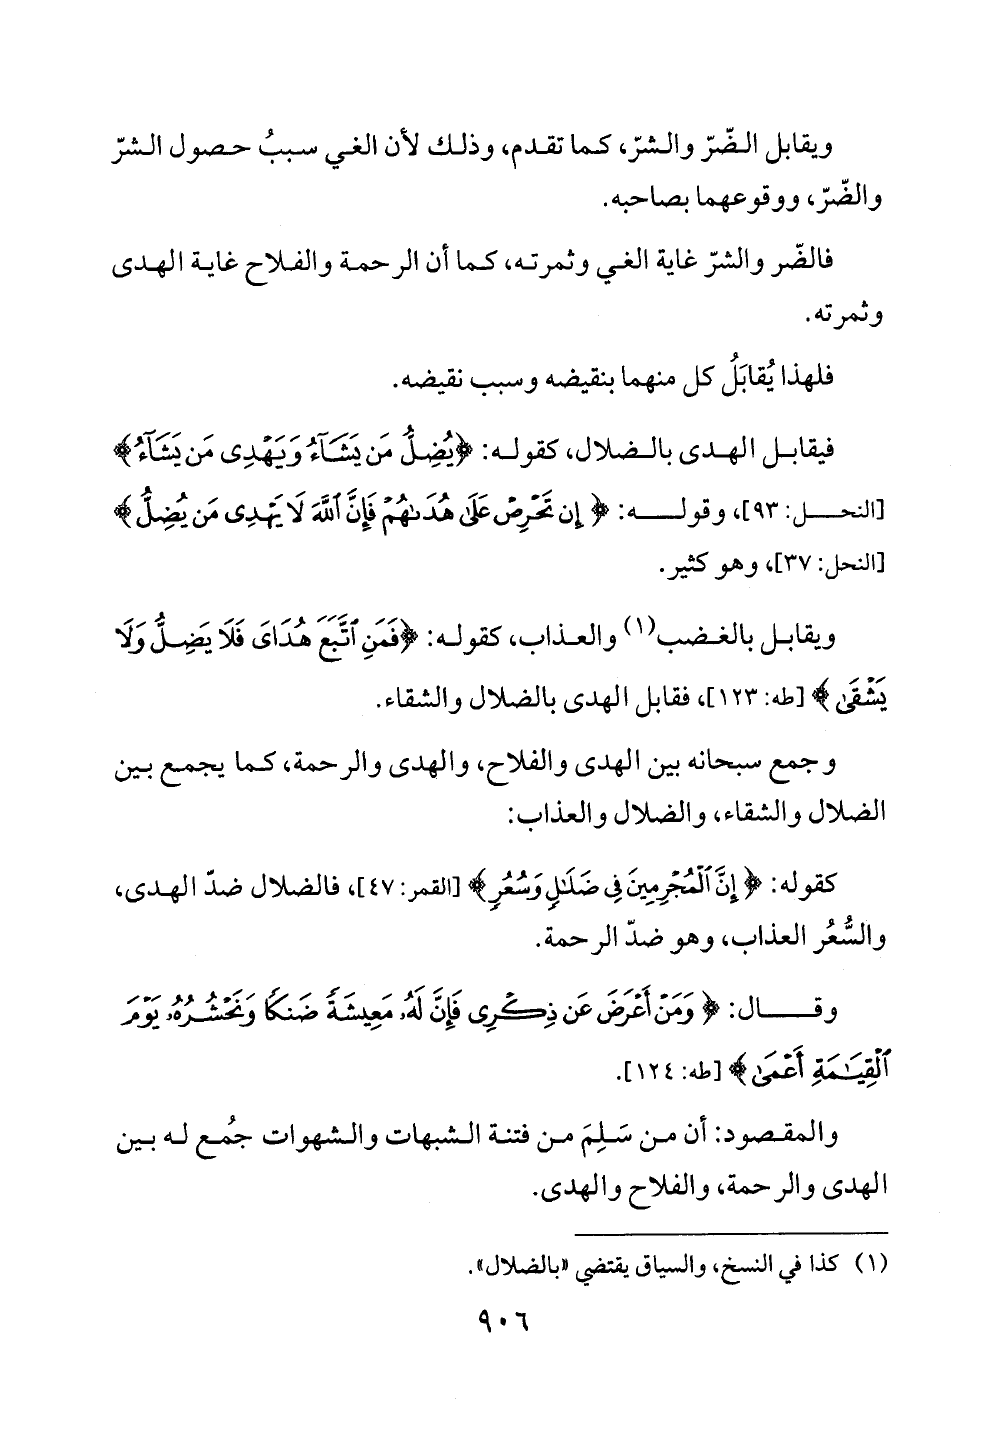 ويقابل الضّرّ والشرّ، كما تقدم، وذلك لأن الغي سببُ حصول الشرّ
والضّرّ، ووقوعهما بصاحبه.
فالضّر والشرّ غاية الغي وثمرته، كما أن الرحمة والفلاح غاية الهدى
وثمرته.
فلهذا يُقابَلُ كل منهما بنقيضه وسبب نقيضه.
فيقابل الهدى بالضلال، كقوله: ﴿يُضِلُّ مَن يَشَآءُ وَيَهْدِى مَن يَشَآءُ﴾
[النحل: ٩٣]، وقوله: ﴿إِن تَحْرِصْ عَلَىٰ هُدَىٰهُمْ فَإِنَّ ٱللَّهَ لَا يَهْدِى مَن يُضِلُّ﴾
[النحل: ٣٧]، وهو كثير.
ويقابل بالغضب(١) والعذاب، كقوله: ﴿فَمَنِ ٱتَّبَعَ هُدَاىَ فَلَا يَضِلُّ وَلَا
يَشْقَىٰ﴾ [طه: ١٢٣]، فقابل الهدى بالضلال والشقاء.
وجمع سبحانه بين الهدى والفلاح، والهدى والرحمة، كما يجمع بين
الضلال والشقاء، والضلال والعذاب:
كقوله: ﴿إِنَّ ٱلْمُجْرِمِينَ فِى ضَلَٰلٍ وَسُعُرٍ﴾ [القمر: ٤٧]، فالضلال ضدّ الهدى،
والسُّعُر العذاب، وهو ضدّ الرحمة.
وقال: ﴿وَمَنْ أَعْرَضَ عَن ذِكْرِى فَإِنَّ لَهُۥ مَعِيشَةً ضَنكًا وَنَحْشُرُهُۥ يَوْمَ
ٱلْقِيَٰمَةِ أَعْمَىٰ﴾ [طه: ١٢٤].
والمقصود: أن من سَلِمَ من فتنة الشبهات والشهوات جُمع له بين
الهدى والرحمة، والفلاح والهدى.
(١) كذا في النسخ، والسياق يقتضي «بالضلال».
٩٠٦